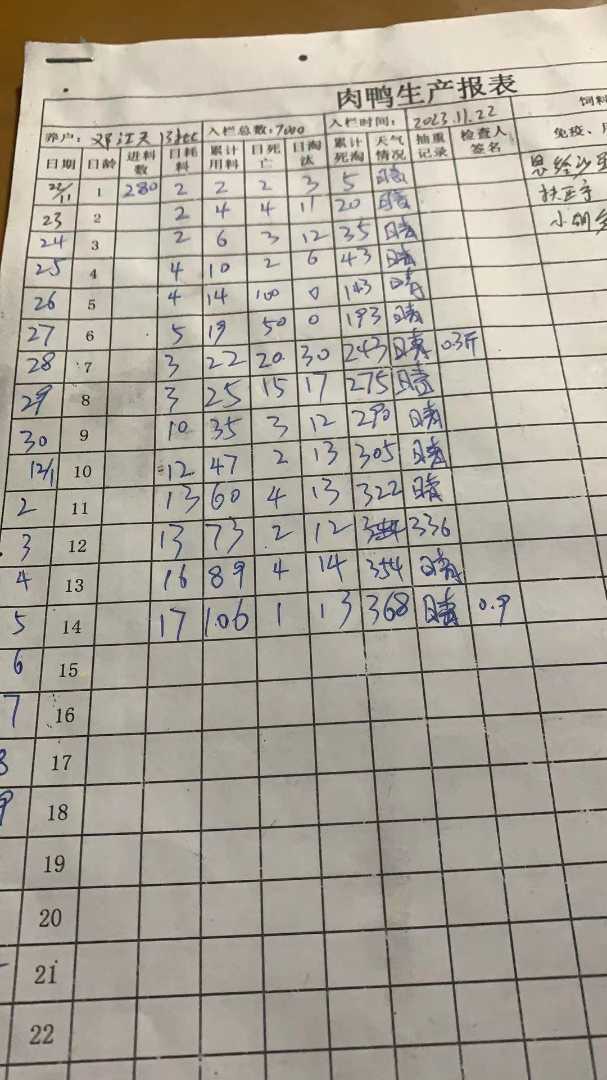 肉鸭生产报表
养户: 邓江天 入栏总数:7000 入栏时间: 2023.11.22 饲料
日期 日龄 进料数 日耗料 累计用料 日死亡 日淘汰 累计死淘 天气情况 抽重记录 检查人签名 免疫、
22/11 1 280 2 2 2 3 5 晴
23 2 2 4 4 11 20 晴
24 3 2 6 3 12 35 晴
25 4 4 10 2 6 43 晴
26 5 4 14 100 0 143 晴
27 6 5 19 50 0 193 晴
28 7 3 22 20 30 243 晴 0.3斤
29 8 3 25 15 17 275 晴
30 9 10 35 3 12 290 晴
12/1 10 12 47 2 13 305 晴
2 11 13 60 4 13 322 晴
3 12 13 73 2 12 336
4 13 16 89 4 14 354 晴
5 14 17 106 1 13 368 晴 0.9
6 15
7 16
8 17
9 18
19
20
21
22